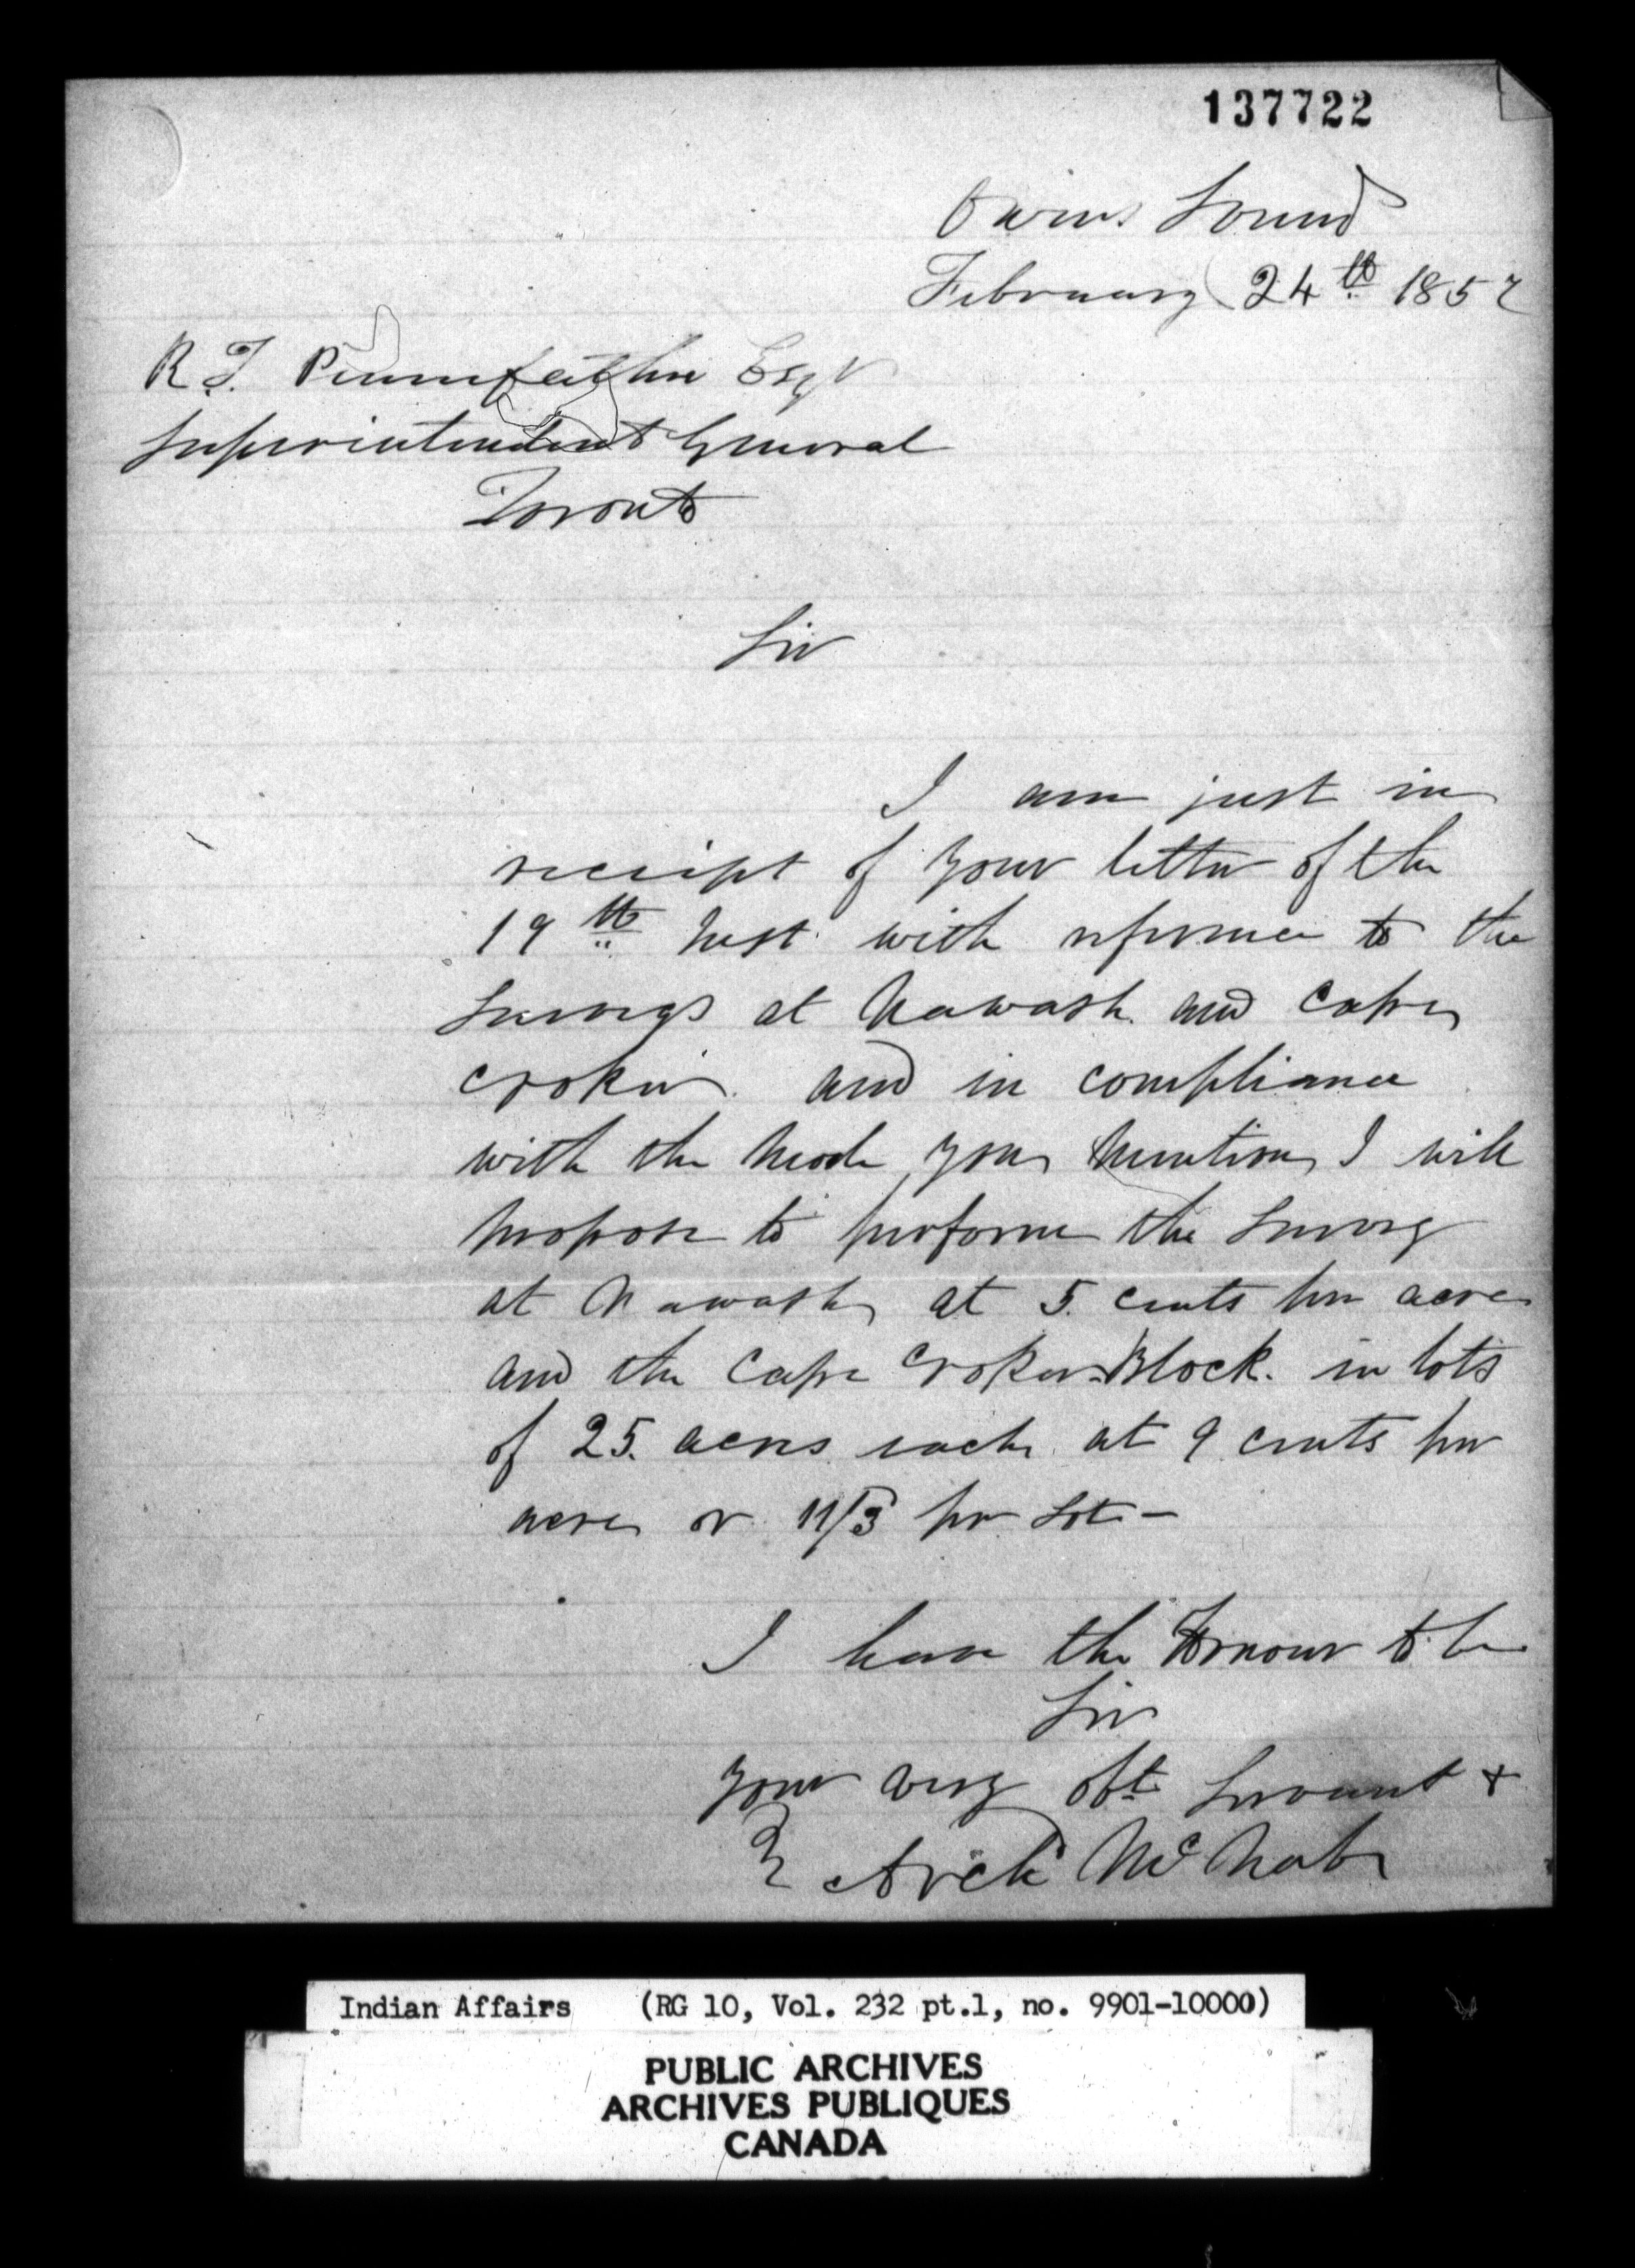 137722
Owens Sound
February 24th 1857
R. T. Pennefather Esqr
Superintendent General
Toronto
Sir
I am just in
receipt of your letter of the
19th Inst with reference to the
Surveys at Nawash and Cape
Croker and in compliance
with the Mode you Mention I will
propose to perform the Survey
at Nawash at 5. cents per acre
and the Cape Croker Block. in lots
of 25. acres each at 9 cents per
acre or 11/3 per Lot -
I have the Honour to be
Sir
your very obt Servant &
Archd McNab
Indian Affairs (RG 10, Vol. 232 pt.1, no. 9901-10000)
PUBLIC ARCHIVES
ARCHIVES PUBLIQUES
CANADA